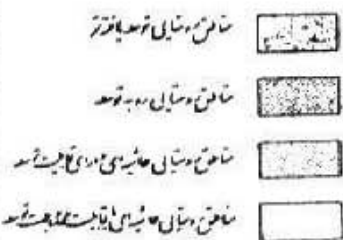 مناطق روستایی توسعه یافته‌تر
مناطق روستایی رو به توسعه
مناطق روستایی حاشیه‌ای دارای قابلیت توسعه
مناطق روستایی حاشیه‌ای با قابلیت توسعه